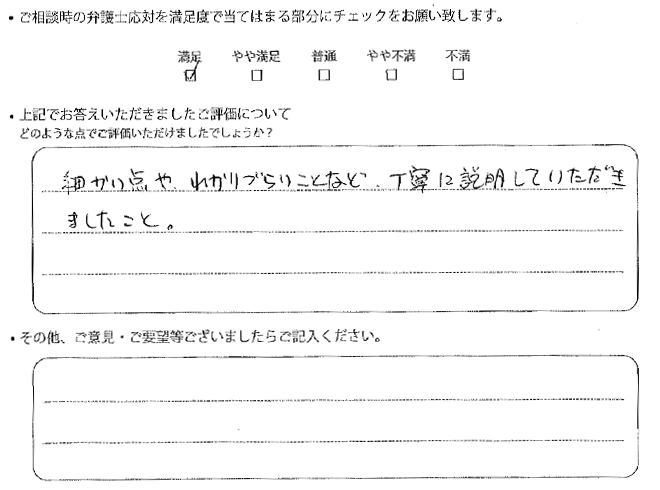 ・ご相談時の弁護士応対を満足度で当てはまる部分にチェックをお願い致します。
満足 やや満足 普通 やや不満 不満
☑ □ □ □ □
・上記でお答えいただきましたご評価について
どのような点でご評価いただけましたでしょうか?
細かい点や、わかりづらいことなど、丁寧に説明していただき
ましたこと。
・その他、ご意見・ご要望等ございましたらご記入ください。